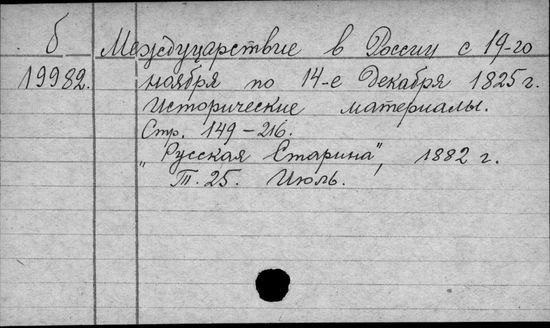 б Междуцарствие в России с 19-го
19982. ноября по 14-е Декабря 1825 г.
Исторические материалы.
Стр. 149-216.
„Русская Старина", 1882 г.
Т. 25. Июль.